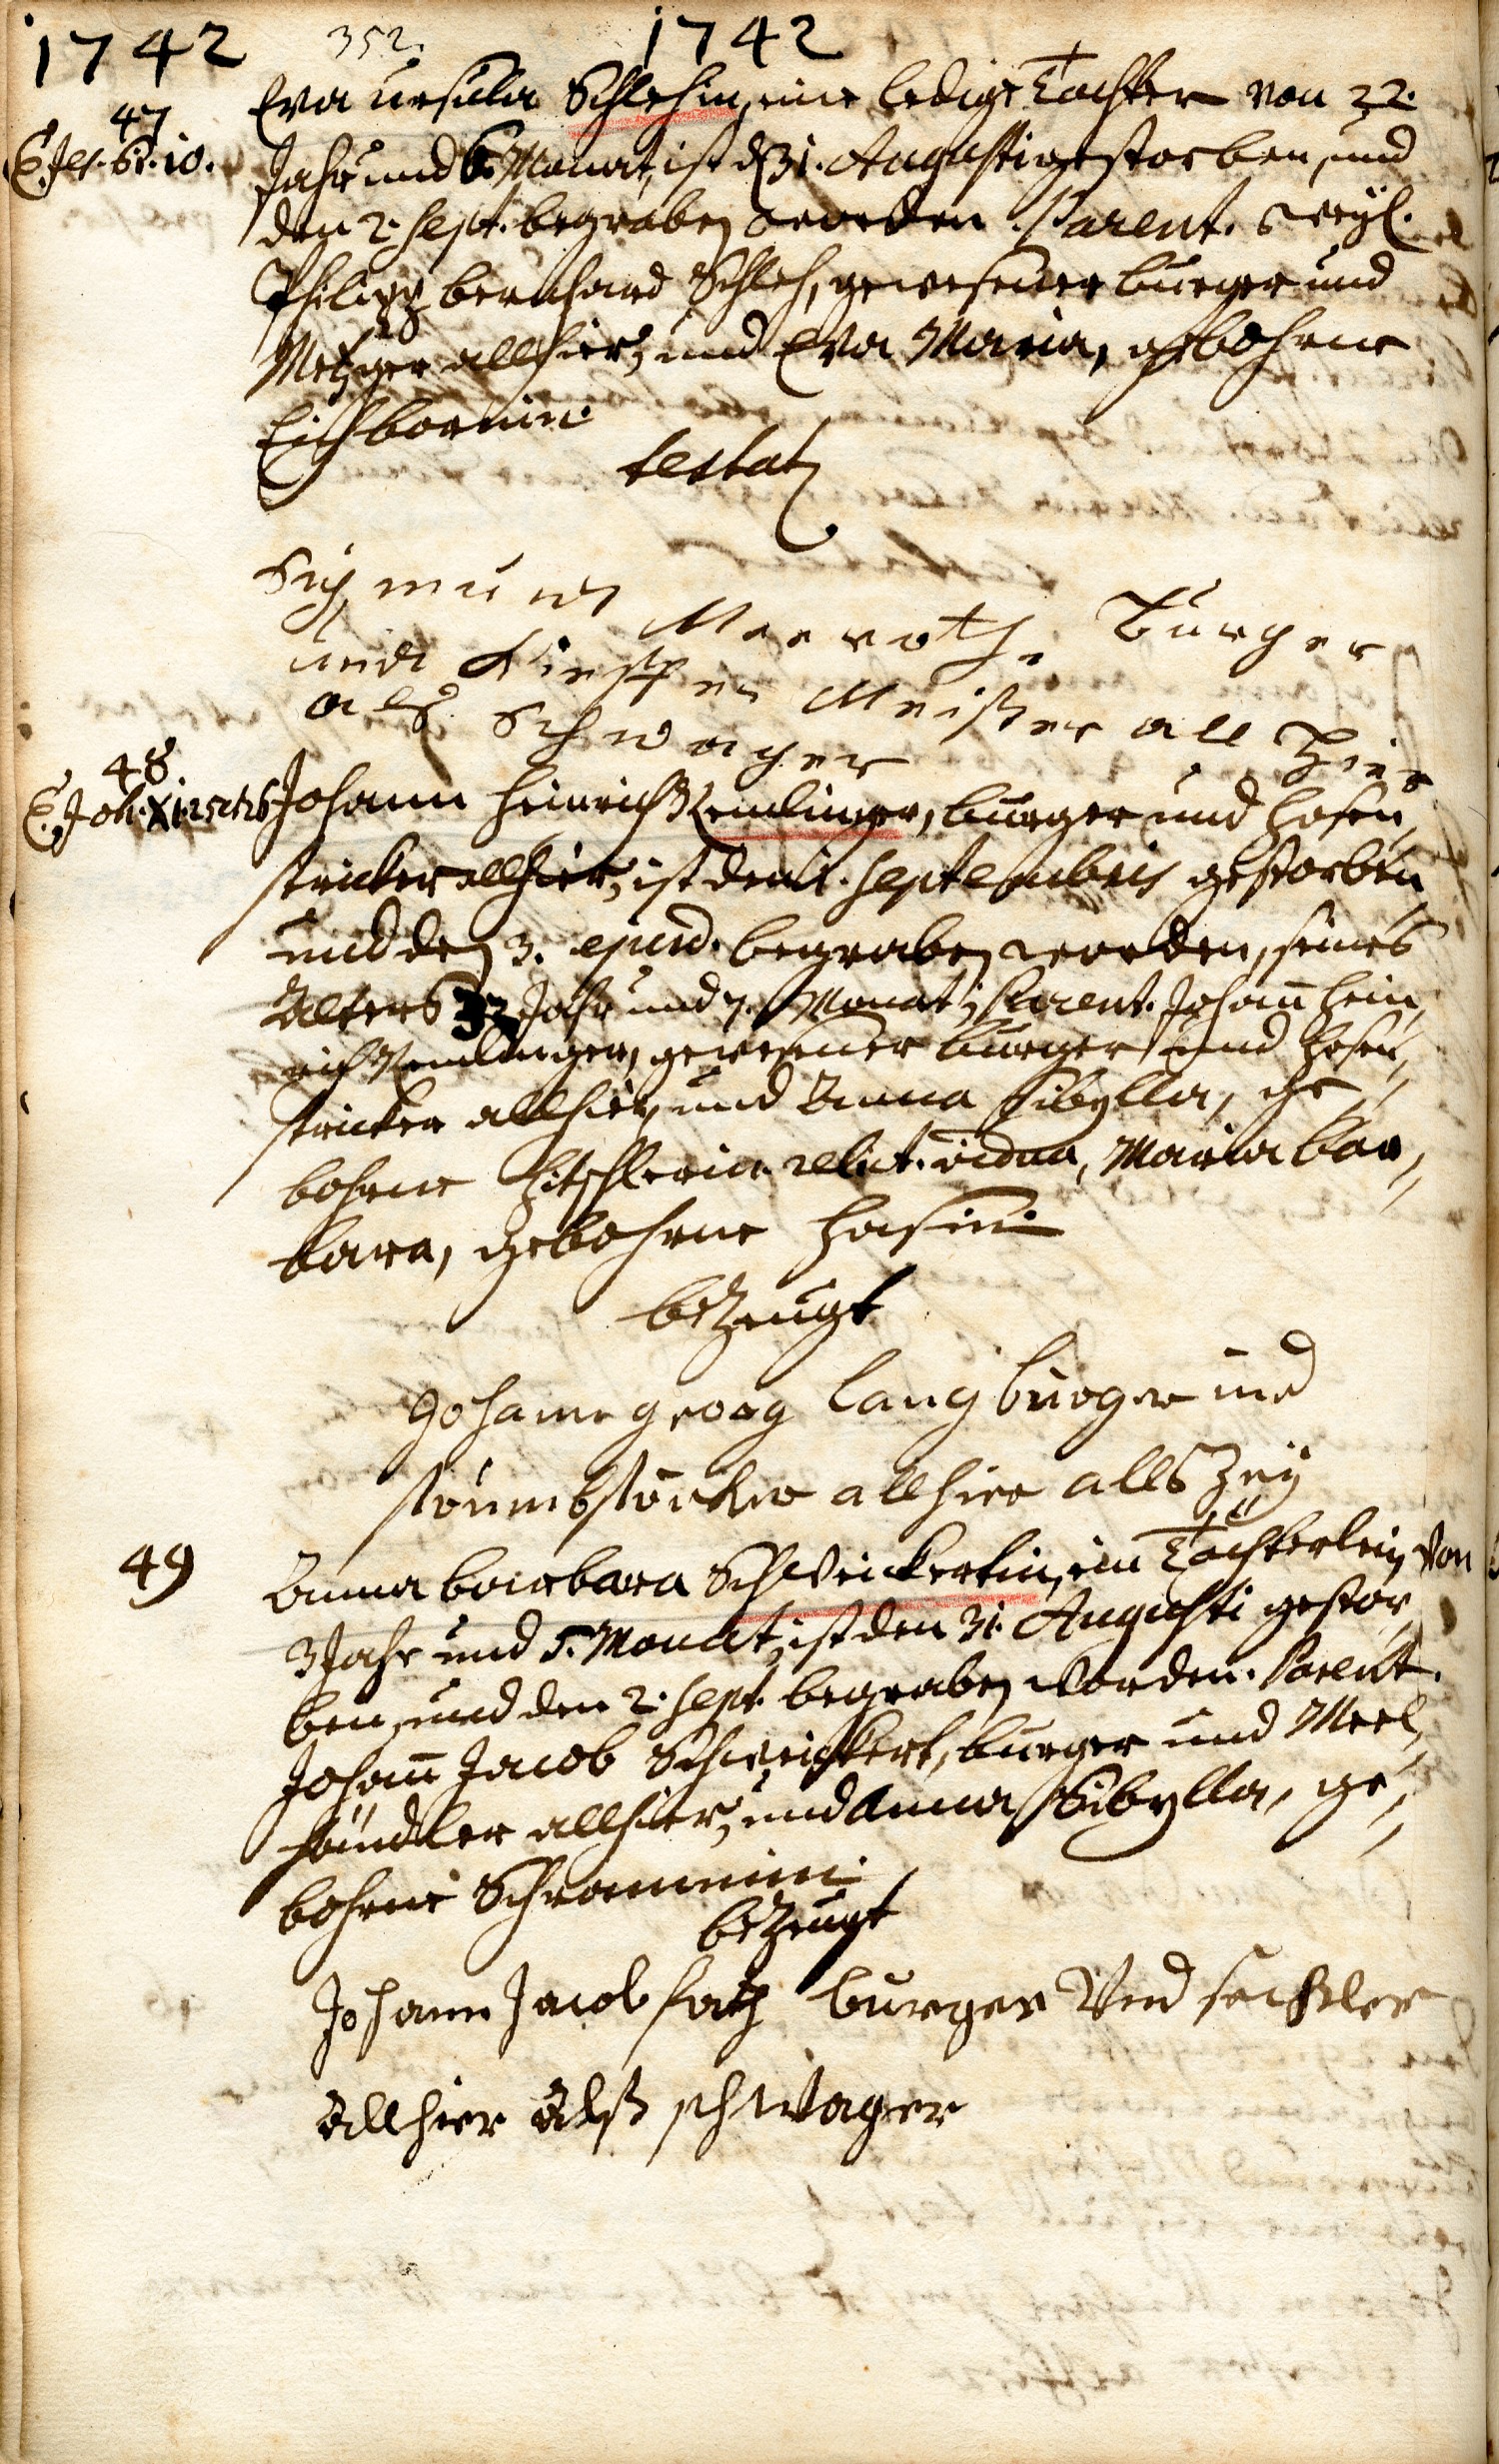 1742 352. 1742
47
E. Jes. 61. 10.
Eva Ursula Schlehin, eine ledige Tochter von 22.
Jahr und 6. Monat, ist d 31. Augusti gestorben, und
den 2. Sept. begraben worden. Parent. weyl.
Philipp Bernhard Schleh, gewesener burger und
Metzger allhier, und Eva Maria, gebohrne
Eichbornin.
testat
Sigmundt Meeroth. Burger
und Kieffer Meister all hier
als Schwager
48
E. Joh. XI. 25 et 26
Johann Heinrich Remlinger, burger und Hosen
stricker allhier, ist den 1. Septembris gestorben
und den 3. ejusd. begraben worden, seines
Alters 32 Jahr und 7. Monat; Parent. Johann Hein
rich Remlinger, gewesener burger und Hosen
stricker allhier, und Anna Sibylla, ge
bohrne relict. vidua, Maria Bar
bara, gebohrne Hasin.
bezeugt
Johann georg lang burger und
strumbstricker allhier alls Zeig
49
Anna Barbara Schweickertin, ein Töchterlein von
3 Jahr und 5. Monat, ist den 31. Augusti gestor
ben, und den 2. Sept. begraben worden. Parent.
Johann Jacob Schweickert, burger und Meel
händler allhier, und Anna Sibylla, ge
bohrne Schrammin.
bezeugt
Johann Jacob fatz burger Und seckler
Allhier Alß schwager